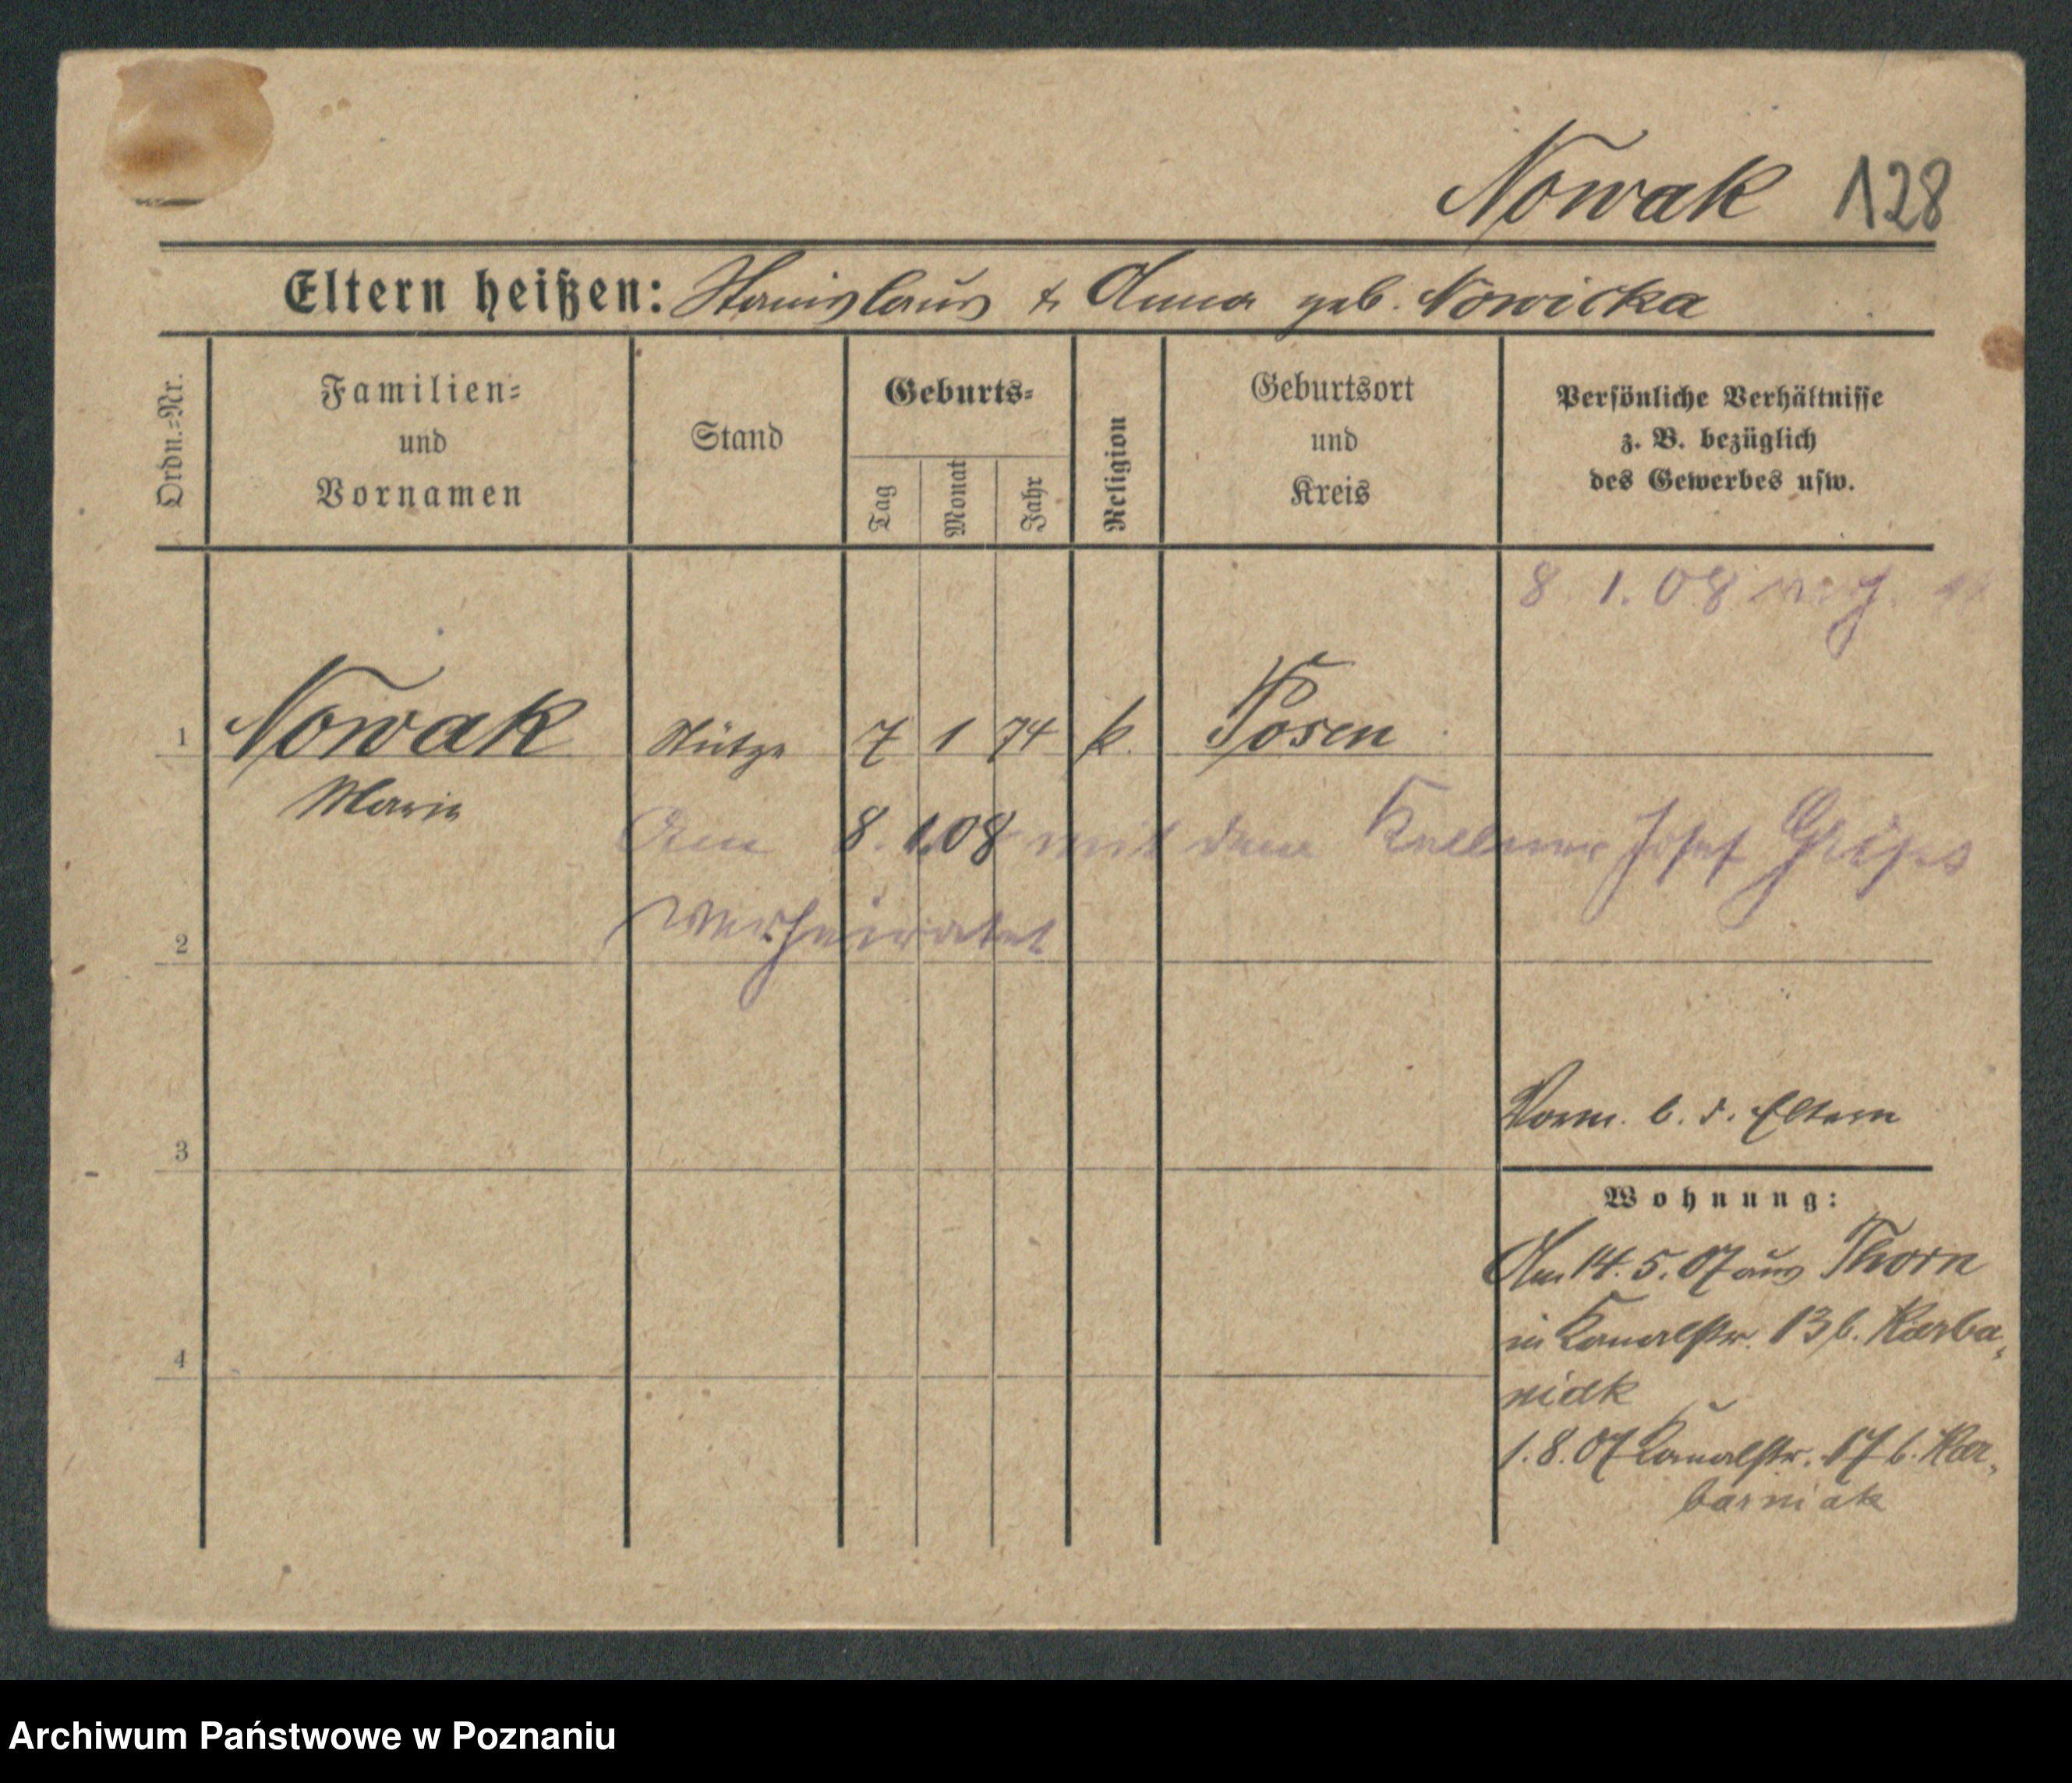 Nowak 128
Eltern heißen: Stanislaus & Anna geb. Nowicka
Ordn.=Nr.
Familien=
und
Vornamen
Stand
Geburts=
Tag
Monat
Jahr
Religion
Geburtsort
und
Kreis
Persönliche Verhältnisse
z. B. bezüglich
des Gewerbes usw.
8. 1. 08
1 Nowak Stütze 7 1 74 k. Posen
Marie
Am 8. 1. 08 mit dem Kellner Josef
verheiratet
2
Vorm. b. d. Eltern
3
Wohnung:
Am 14. 5. 07 aus Thorn
in Kanalstr. 13 b. Karba,
niak
4
1. 8. 07 Kanalstr. 17 b. Kar,
barniak
Archiwum Państwowe w Poznaniu